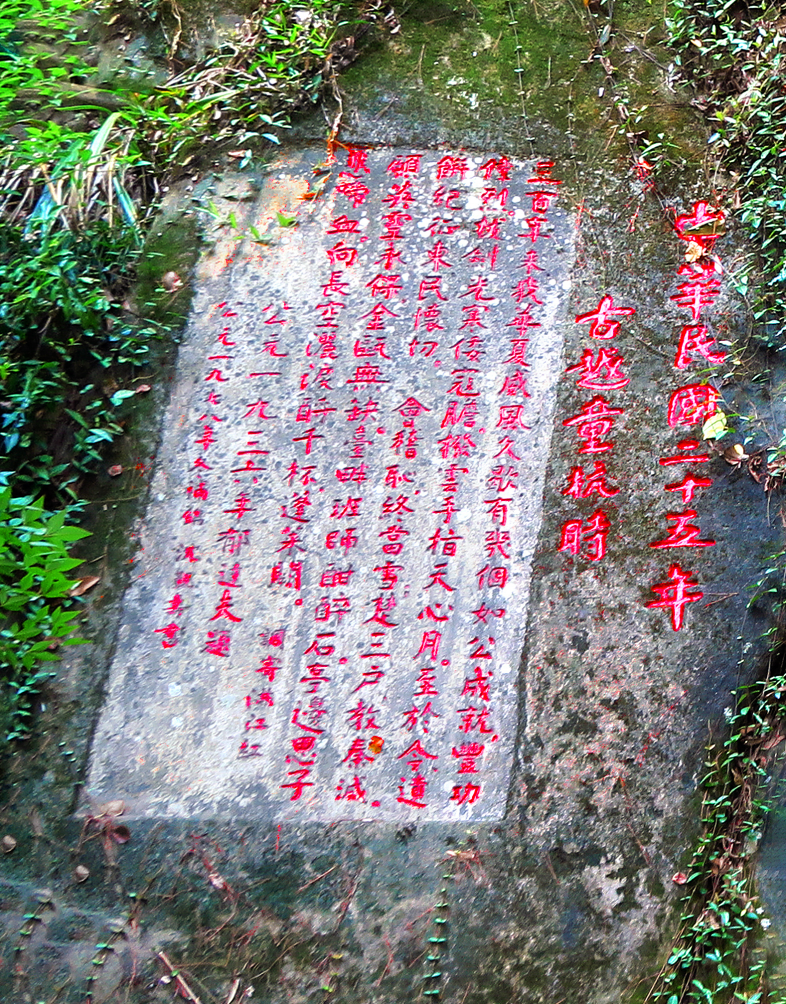 中華民國二十五年
古越童杭時
三百年來我華夏威風久歇有幾個如公成就，豐功
偉烈。拔劍光寒倭寇膽，撥雲手指天心月。至於今，遺
餅紀征東民懷切。會稽恥，終當雪，楚三戶，教秦滅。
願英靈永保金甌無缺。臺畔班師酣醉石，亭邊思子
悲啼血。向長空灑淚酹千杯，蓬萊闕。調寄滿江紅
公元一九三六年郁達夫題
公元一九七八年冬補鐫 沈覲壽書